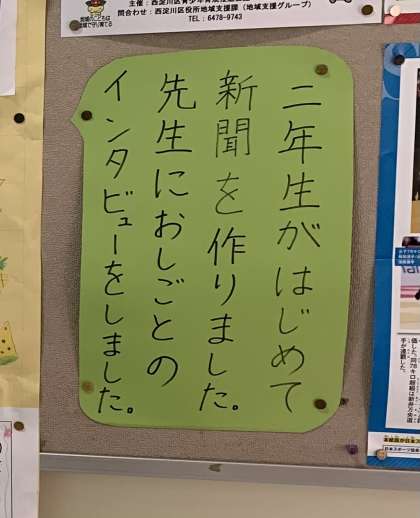 主催：西淀川区青少年育成
問合わせ：西淀川区役所地域支援課（地域支援グループ）
TEL：6478-9743
二年生がはじめて
新聞を作りました。
先生におしごとの
インタビューをしました。